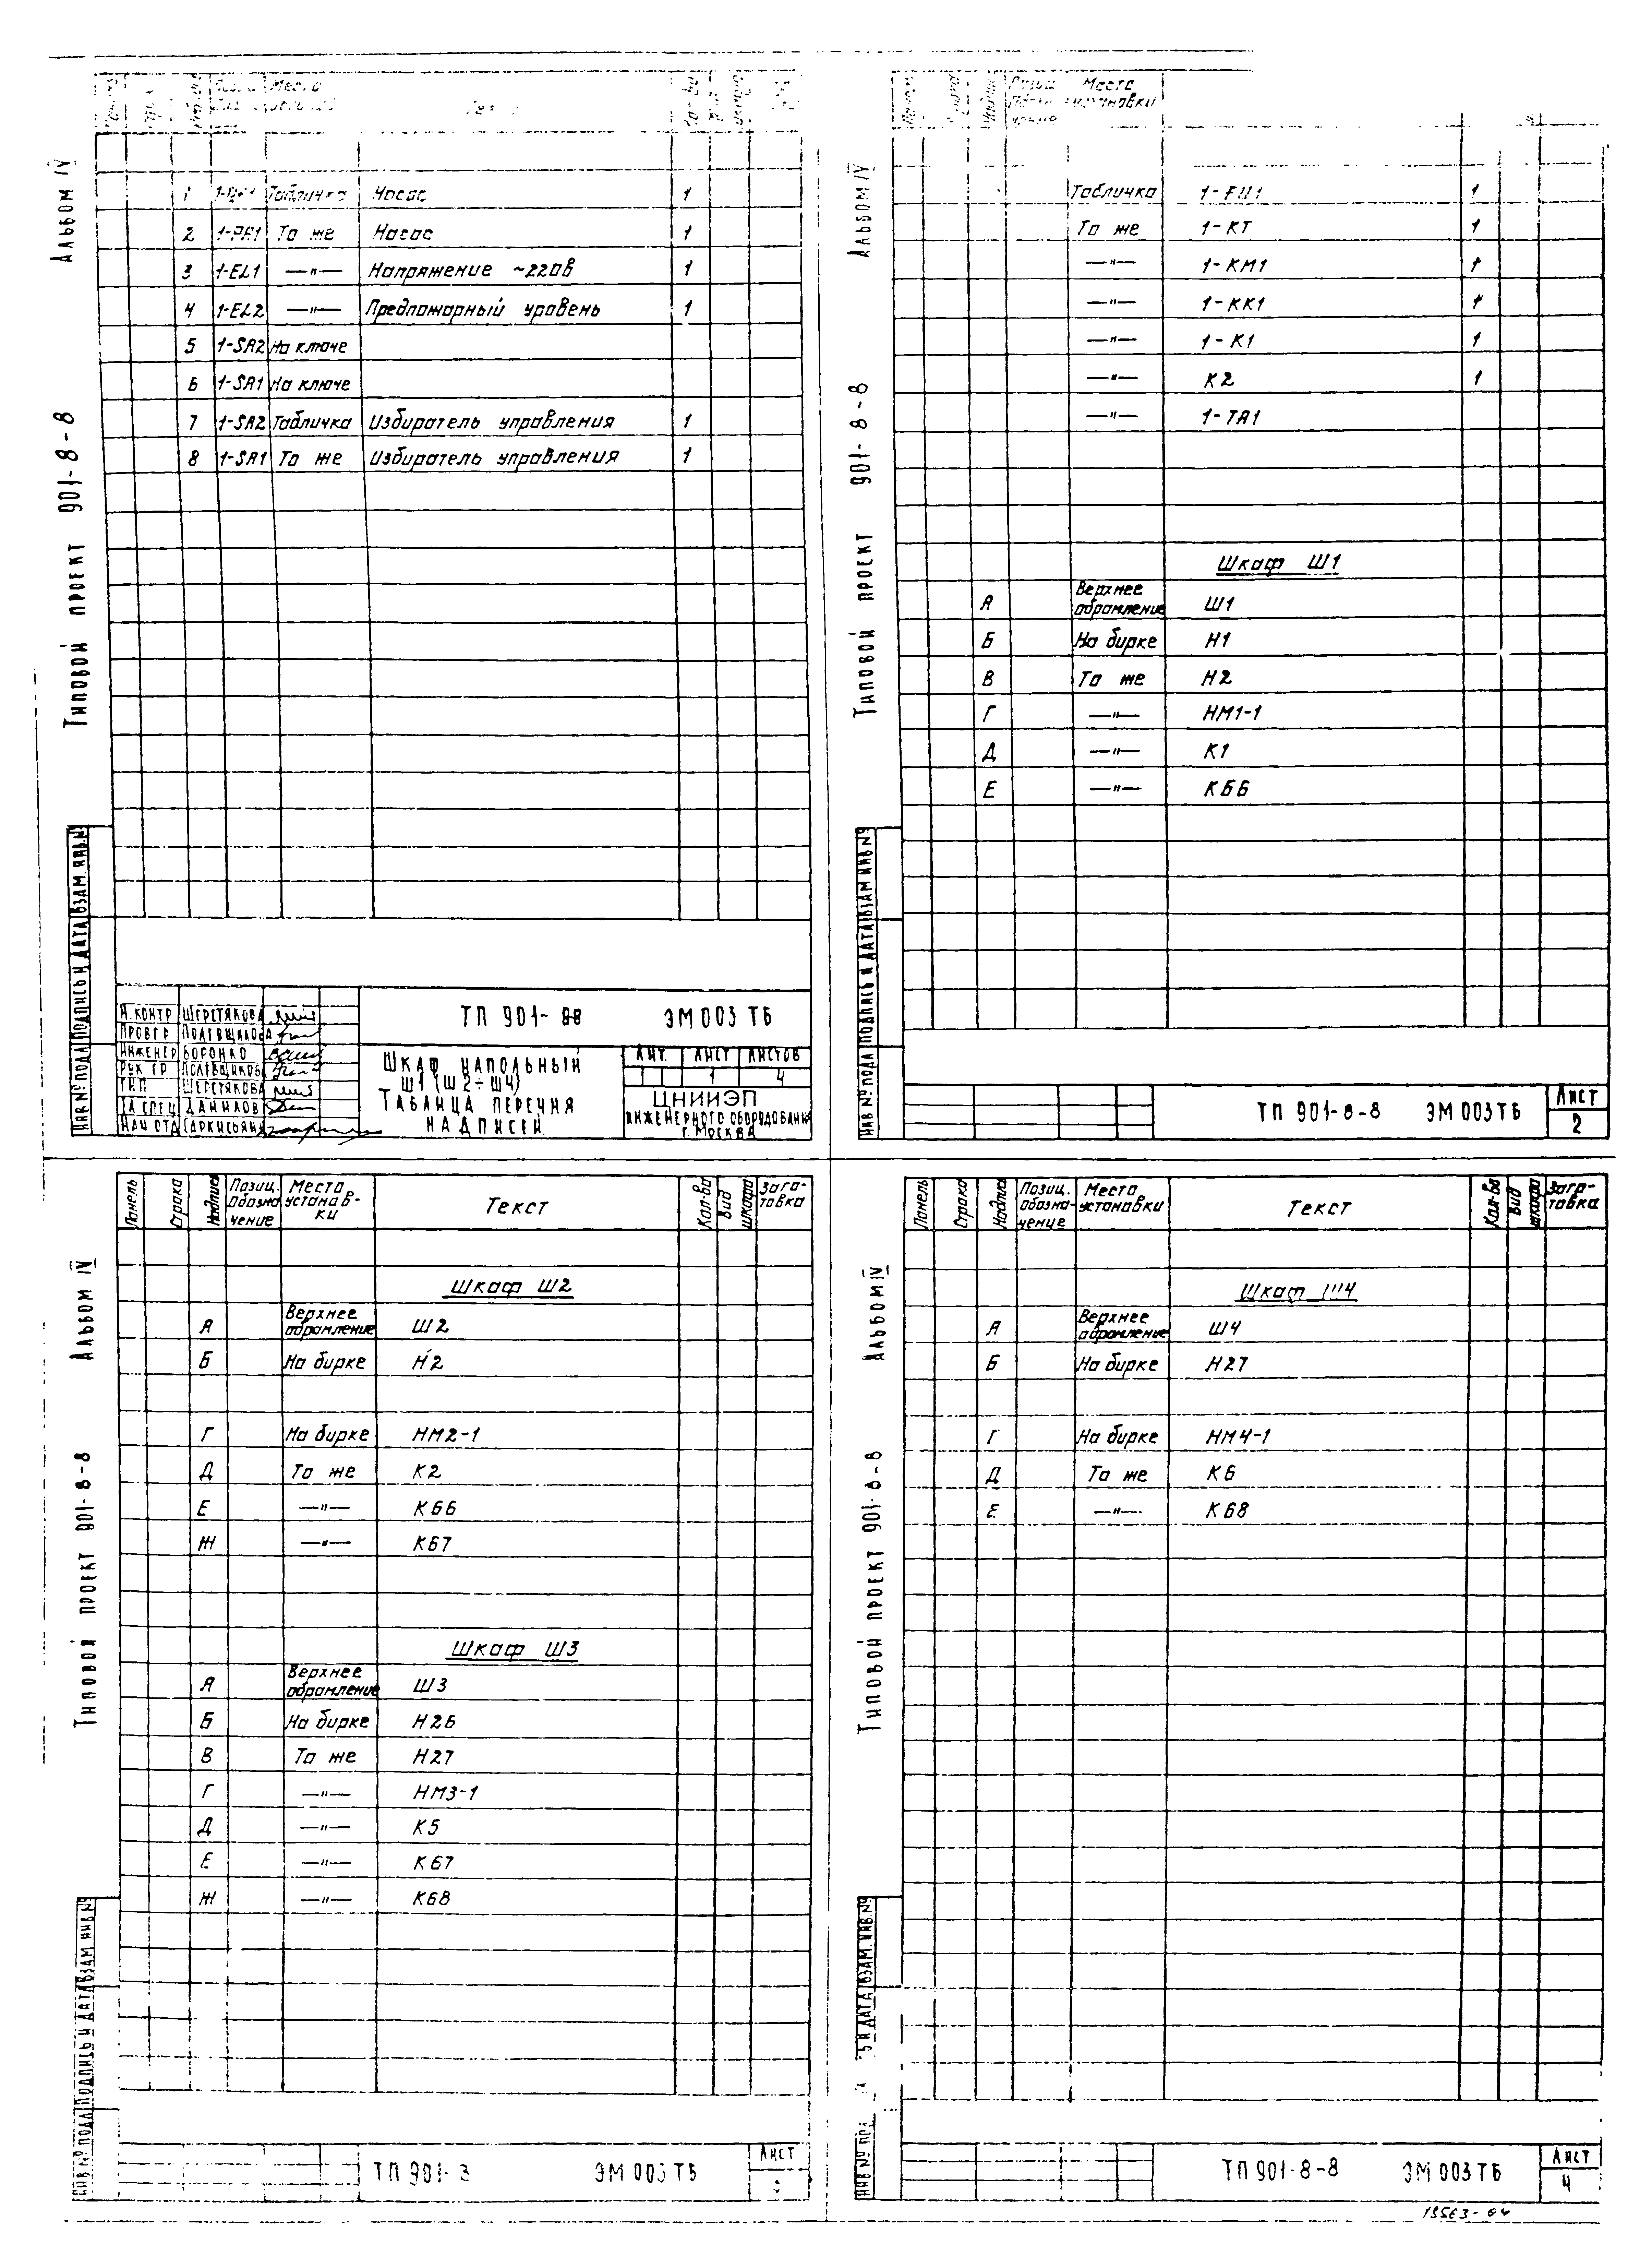 Место
Альбом IV
Типовой проект 901-8-8
1 Табличка Насос 1
2 1-РА1 То же Насос 1
3 1-EL1 —"— Напряжение ~220В 1
4 1-EL2 —"— Предпожарный уровень 1
5 1-SA2 На ключе
6 1-SA1 На ключе
7 1-SA2 Табличка Избиратель управления 1
8 1-SA1 То же Избиратель управления 1
Инв № подл Подпись и дата Взам. инв.№
Н.контр Шерстякова
Провер Полевщикова
Инженер Боронко
Рук гр Полевщикова
Шерстякова
Гл спец Данилов
Нач отд Саркисьянц
ТП 901-88 ЭМ 003 ТБ
Шкаф напольный
Ш1 (Ш2÷Ш4)
Таблица перечня
надписей.
Лит. Лист Листов
1 4
ЦНИИЭП
инженерного оборудования
г. Москва
Место
установки
Альбом IV
Типовой проект 901-8-8
Табличка 1
То же 1-КТ 1
—"— 1-КМ1 1
—"— 1-КК1 1
—"— 1-К1 1
—"— К2 1
—"— 1-ТА1
Шкаф Ш1
А Верхнее обрамление Ш1
Б На бирке Н1
В То же Н2
Г —"— НМ1-1
Д —"— К1
Е —"— К66
Инв № подл Подпись и дата Взам инв №
ТП 901-8-8 ЭМ 003ТБ Лист
2
Панель Строка Надпись Позиц. обозначение Место установ-ки Текст Кол-во Вид шкафа Заго-товка
Альбом IV
Типовой проект 901-8-8
Шкаф Ш2
А Верхнее обрамление Ш2
Б На бирке Н2
Г На бирке НМ2-1
Д То же К2
Е —"— К66
Ж —"— К67
Шкаф Ш3
А Верхнее обрамление Ш3
Б На бирке Н26
В То же Н27
Г —"— НМ3-1
Д —"— К5
Е —"— К67
Ж —"— К68
Инв № подл Подпись и дата Взам инв №
ТП 901- ЭМ 003 ТБ Лист
Панель Строка Надпись Позиц. обозна-чение Место установки Текст Кол-во Вид шкафа Заго-товка
Альбом IV
Типовой проект 901-8-8
Шкаф Ш4
А Верхнее обрамление Ш4
Б На бирке Н27
Г На бирке НМ4-1
Д То же К6
Е —"— К68
и дата Взам. инв.№
Инв №
ТП 901-8-8 ЭМ 003ТБ Лист
4